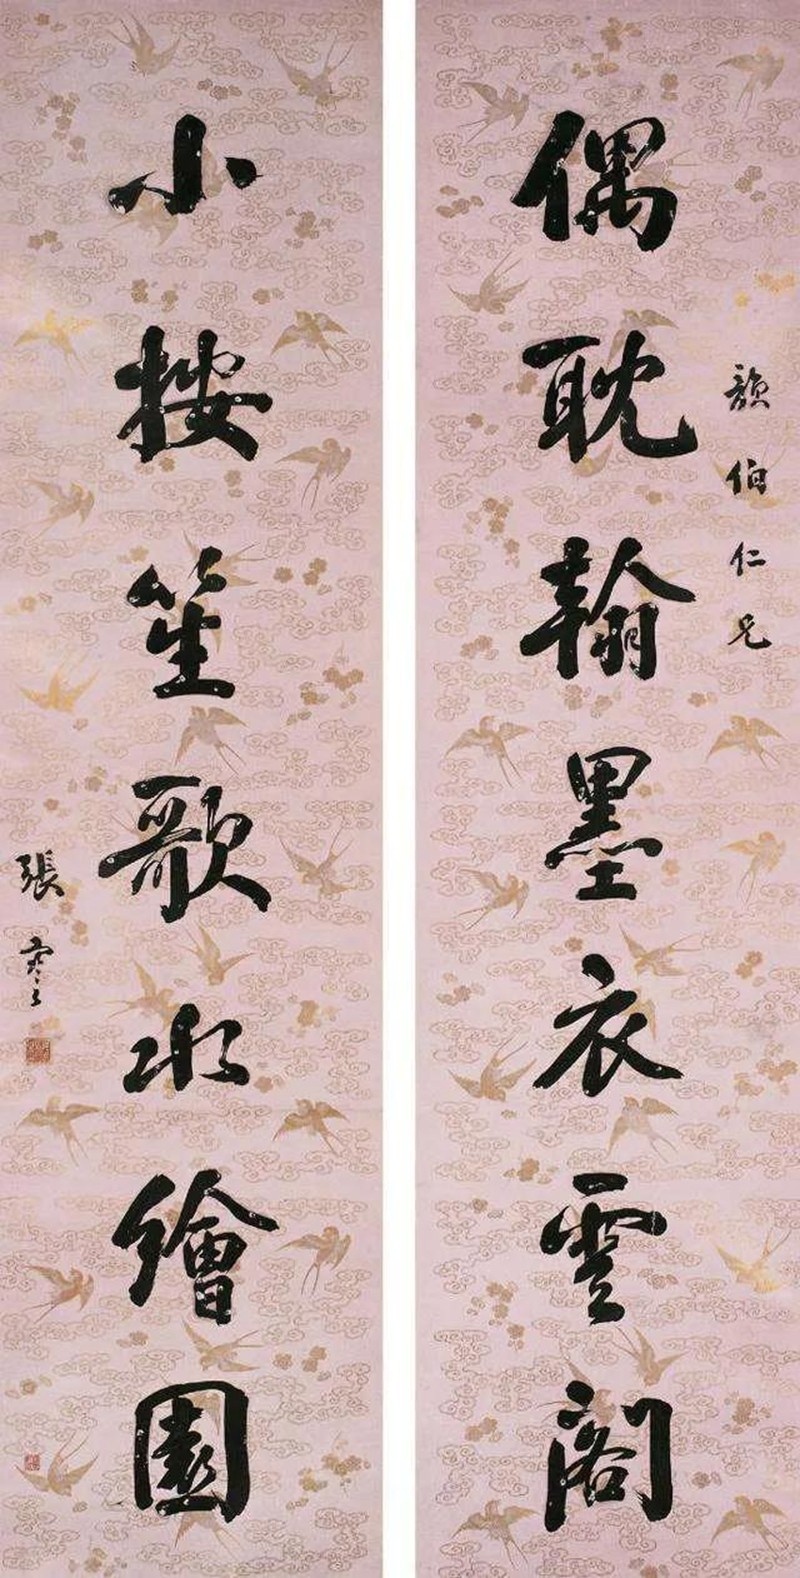 韻伯仁兄
偶耽翰墨衣雲閣
小按笙歌水繪園
張謇